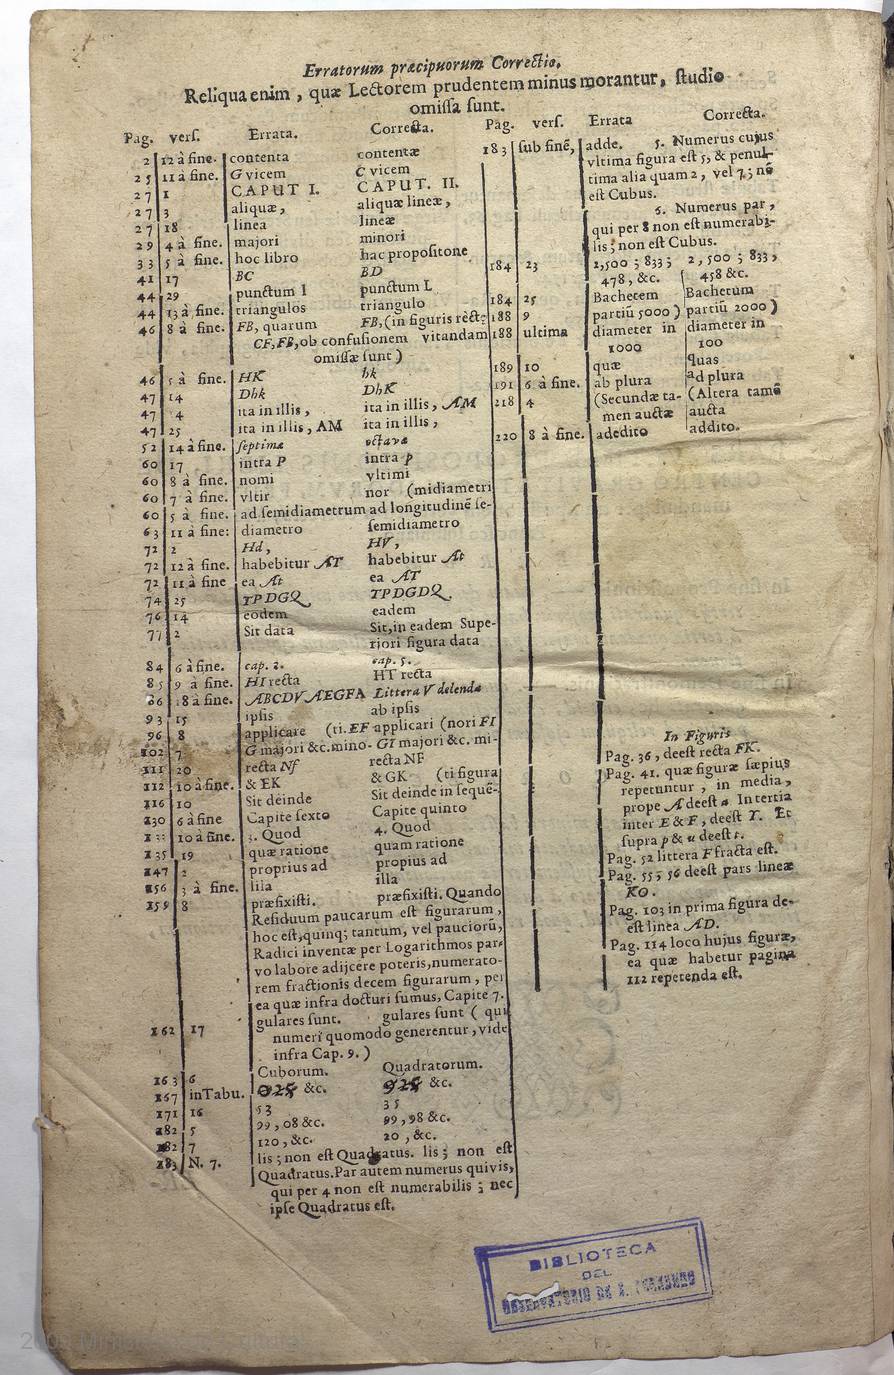 Erratorum præcipuorum Correctio.
Reliqua enim, quæ Lectorem prudentem minus morantur, studio
omissa sunt.
Pag. vers. Errata. Correcta.
2 12 à fine. contenta contentæ
25 11 à fine. G vicem C vicem
27 1 CAPUT I. CAPUT. II.
27 3 aliquæ, aliquæ lineæ,
27 18 linea lineæ
29 4 à fine. majori minori
33 5 à fine. hoc libro hac propositone
41 17 BC BD
44 29 punctum l punctum L
44 13 à fine. triangulos triangulo
46 8 à fine. FB, quarum FB, (in figuris rectę
CF, FB, ob confusionem vitandam
omissæ sunt)
46 5 à fine. HK hk
47 14 Dhk DhK
47 4 ita in illis, ita in illis, AM
47 25 ita in illis, AM ita in illis,
52 14 à fine. septima octava
60 17 intra P intra p
60 8 à fine. nomi vltimi
60 7 à fine. vltir nor (midiametri
60 5 à fine. ad semidiametrum ad longitudinē se-
63 11 à fine: diametro semidiametro
72 2 Hd, HV,
72 12 à fine. habebitur AT habebitur At
72 11 à fine ea At ea AT
74 25 TPDGQ TPDGDQ.
76 14 eodem eadem
77 2 Sit data Sit, in eadem Supe-
riori figura data
84 6 à fine. cap. 2. cap. 5.
85 9 à fine. HI recta HT recta
86 18 à fine. ABCDVAEGFA Littera V delenda
93 15 ipsis ab ipsis
96 8 applicare (ti. EF applicari (nori FI
102 7 G majori &c. mino- GI majori &c. mi-
111 20 recta Nf recta NF
112 10 à fine. & EK & GK (ti figura
116 10 Sit deinde Sit deinde in sequē-
130 6 à fine Capite sexto Capite quinto
10 à fine. 3. Quod 4. Quod
135 19 quæ ratione quam ratione
147 2 proprius ad propius ad
156 3 à fine. liia illa
159 8 præfixisti. præfixisti. Quando
Residuum paucarum est figurarum,
hoc est, quinq; tantum, vel pauciorū,
Radici inventæ per Logarithmos par-
vo labore adijcere poteris, numerato-
rem fractionis decem figurarum, per
ea quæ infra docturi sumus, Capite 7.
162 17 gulares sunt. gulares sunt (qui
numeri quomodo generentur, vide
infra Cap. 9.)
163 6 Cuborum. Quadratorum.
167 in Tabu. 025 &c. 925 &c.
171 16 53 35
182 5 99, 08 &c. 99, 98 &c.
182 7 120, &c. 20, &c.
183 N. 7. lis; non est Quadratus. lis; non est
Quadratus. Par autem numerus quivis,
qui per 4 non est numerabilis; nec
ipse Quadratus est.
Pag. vers. Errata Correcta.
183 sub finē, adde. 5. Numerus cujus
vltima figura est 5, & penul-
tima alia quam 2, vel 7; nō
est Cubus.
6. Numerus par,
qui per 8 non est numerabi-
lis; non est Cubus.
184 23 2,500; 833; 2,500; 833,
478, &c. 458 &c.
184 25 Bachetem Bachetum
188 9 partiū 5000) partiū 2000)
188 ultima diameter in diameter in
1000 100
189 10 quæ quas
191 6 à fine. ab plura ad plura
218 4 (Secundæ ta- (Altera tamē
men auctæ aucta
220 8 à fine. adedito addito.
In Figuris
Pag. 36, deest recta FK.
Pag. 41. quæ figuræ sæpius
repetuntur, in media,
prope A deest a In tertia
inter E & F, deest T. Et
supra p & u deest t.
Pag. 52 littera F fracta est.
Pag. 55; 56 deest pars lineæ
KO.
Pag. 103 in prima figura de-
est linea AD.
Pag. 114 loco hujus figuræ,
ea quæ habetur pagina
112 repetenda est.
BIBLIOTECA
DEL
OBSERVATORIO DE S. FERNANDO